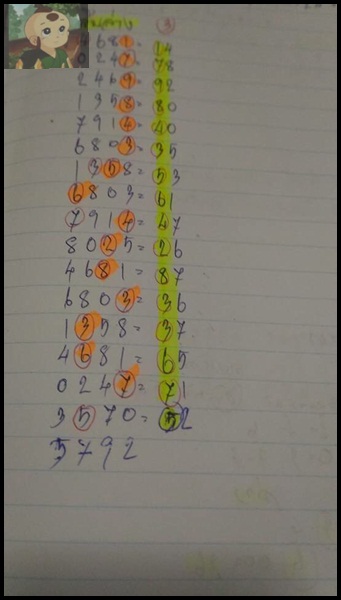 ล่าง 3
681 = 14
0247 = 78
2469 = 92
1358 = 80
7914 = 40
6803 = 35
1358 = 53
6803 = 61
7914 = 47
8025 = 26
4681 = 87
6803 = 36
1358 = 37
4681 = 65
0247 = 71
3570 = 52
5792